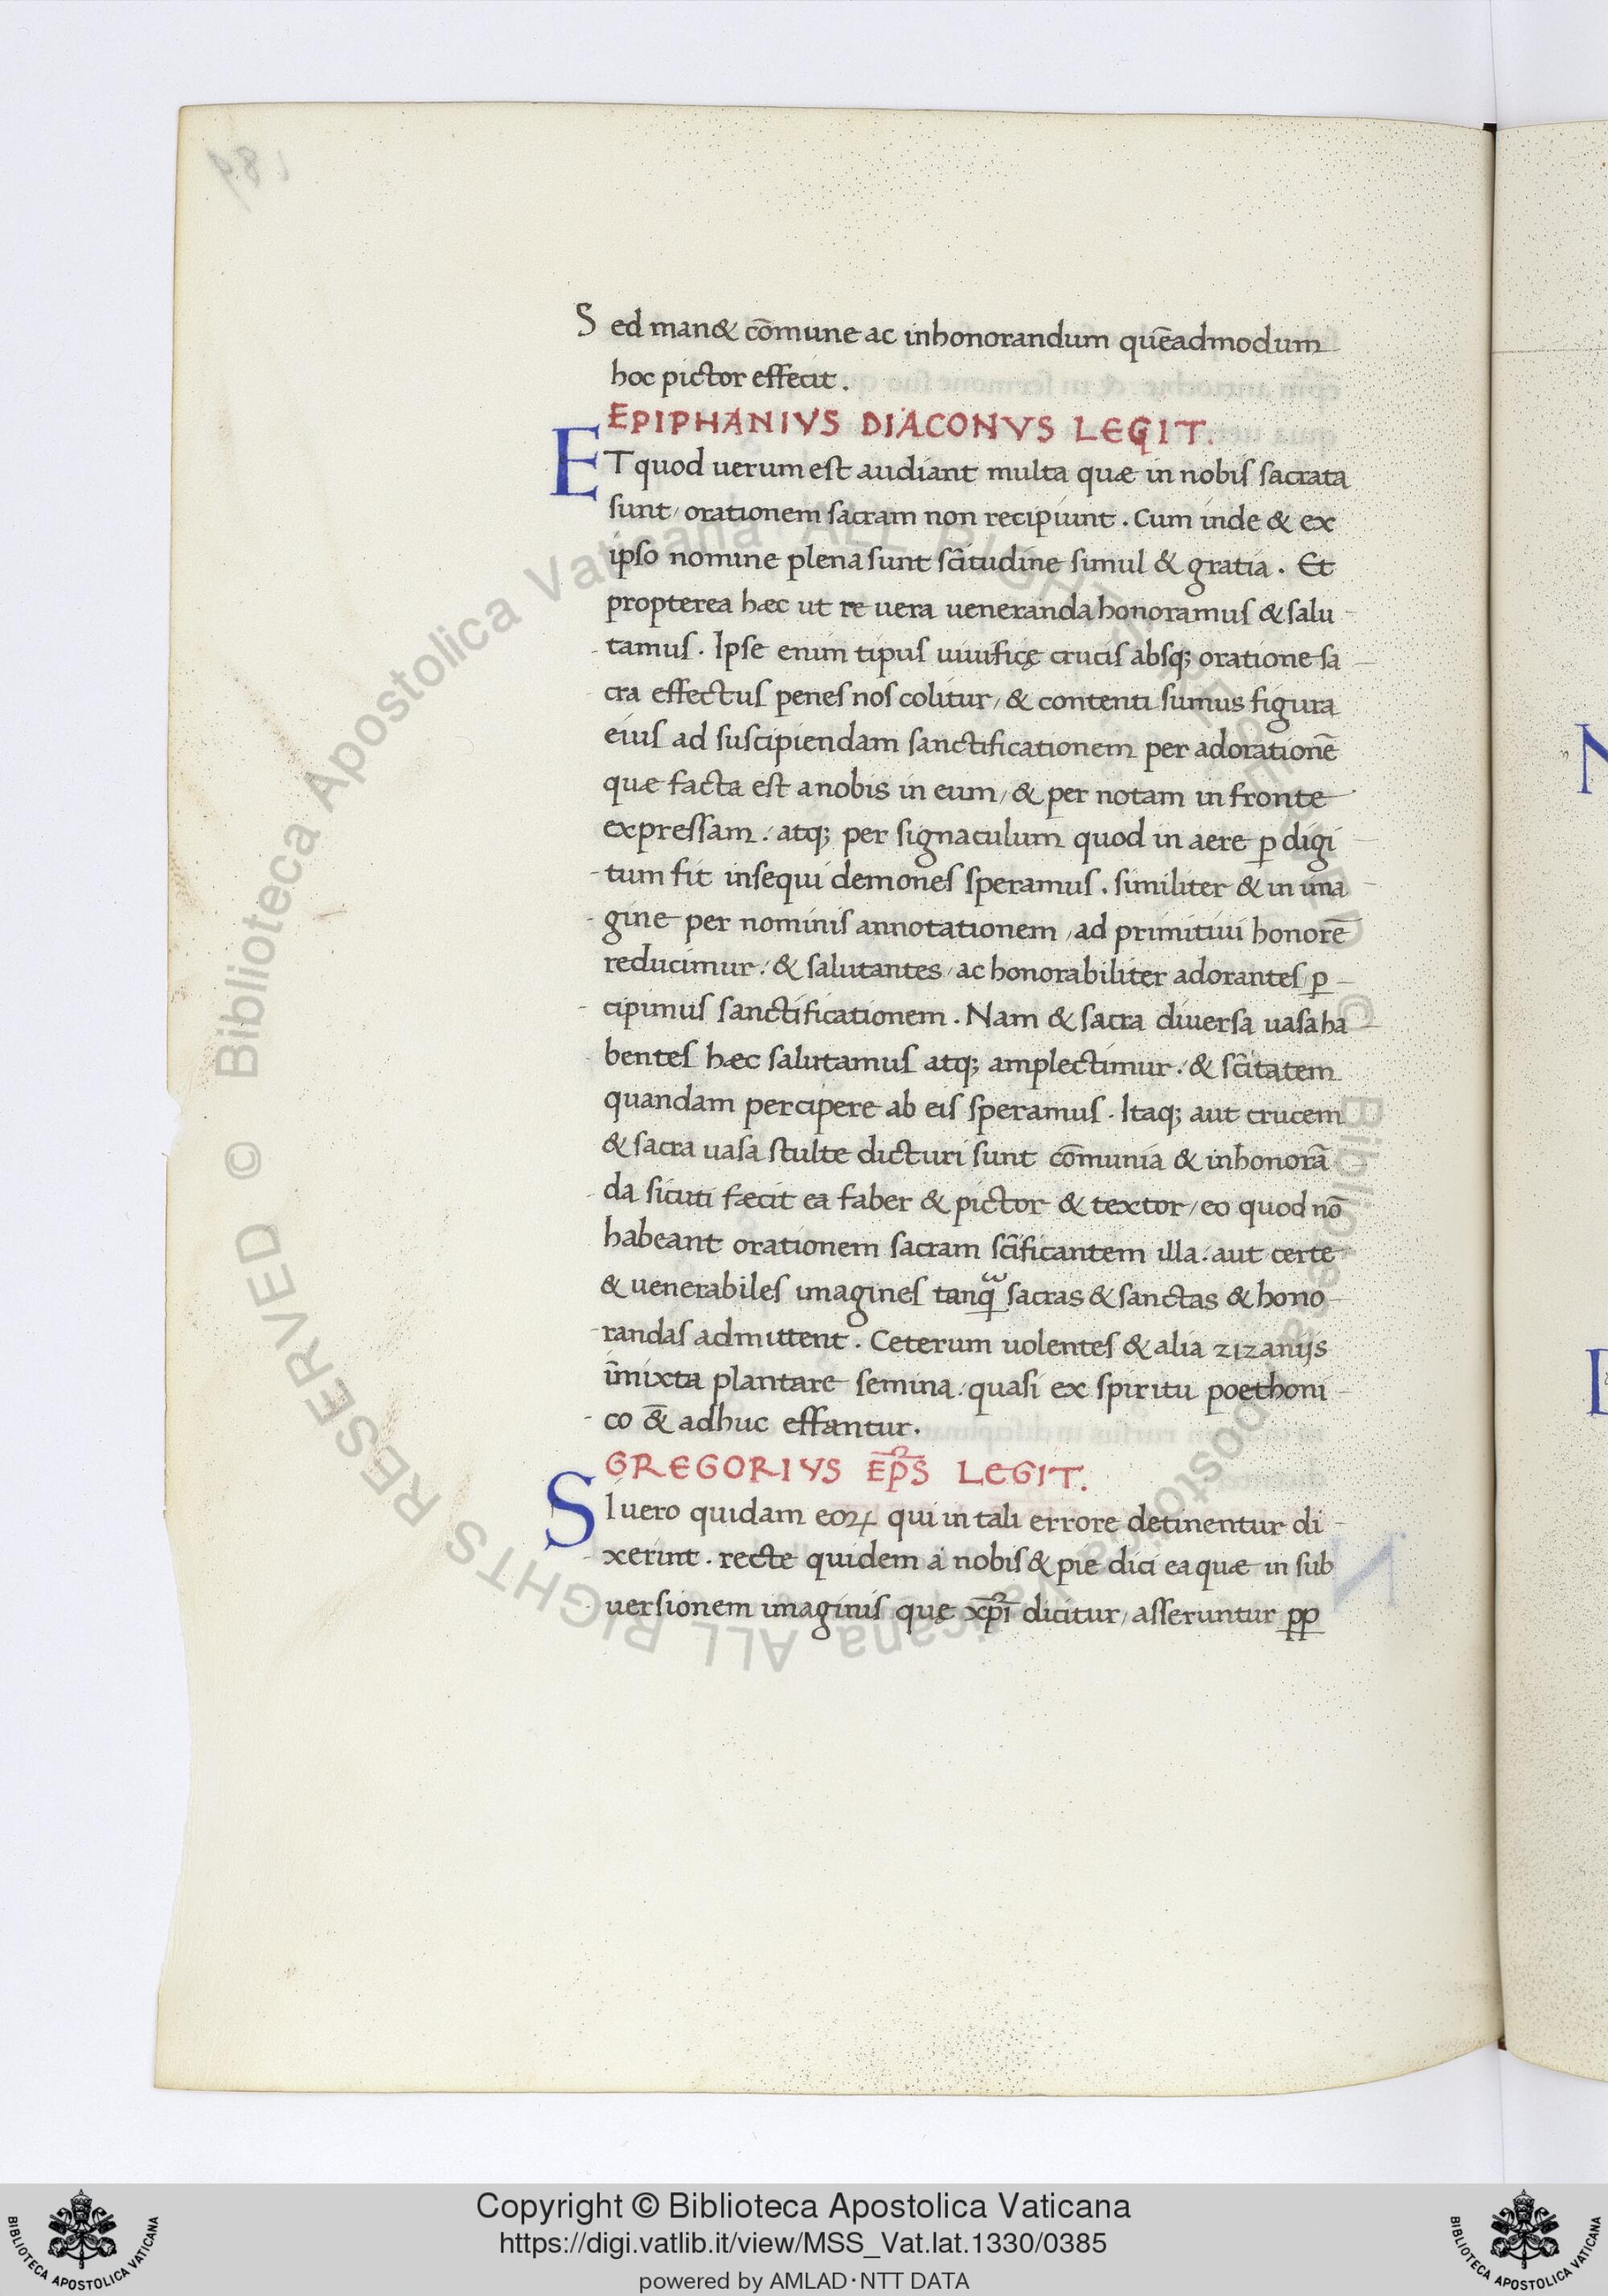 Sed man& cõmune ac inhonorandum quẽadmodum
hoc pictor effecit.
EPIPHANIVS DIACONVS LEGIT.
ET quod uerum est audiant multa quæ in nobis sacrata
sunt/ orationem sacram non recipiunt. Cum inde & ex
ipso nomine plena sunt scĩtudine simul & gratia. Et
propterea hæc ut re uera ueneranda honoramus & salu-
tamus. Ipse enim tipus uiuificę crucis absq; oratione sa
cra effectus penes nos colitur/ & contenti sumus figura
eius ad suscipiendam sanctificationem per adorationẽ
quæ facta est a nobis in eum/ & per notam in fronte
expressam./ atq; per signaculum quod in aere ꝑ digi
tum fit insequi demones speramus. similiter & in ima
gine per nominis annotationem/ ad primitiui honorẽ
reducimur./ & salutantes/ ac honorabiliter adorantes/ ꝑ-
cipimus sanctificationem. Nam & sacra diuersa uasa ha
bentes hæc salutamus atq; amplectimur./ & scĩtatem
quandam percipere ab eis speramus. Itaq; aut crucem
& sacra uasa stulte dicturi sunt cõmunia & inhonorã
da sicuti fæcit ea faber & pictor & textor/ eo quod nõ
habeant orationem sacram scĩficantem illa./ aut certe
& uenerabiles imagines tanqᷓ sacras & sanctas & hono-
randas admittent. Ceterum uolentes & alia zizanijs
ĩmixta plantare semina./ quasi ex spiritu poethoni-
co &̃ adhuc effantur.
GREGORIVS EP̃S LEGIT.
SI uero quidam eoꝝ qui in tali errore detinentur di-
xerint. recte quidem a nobis & pie dici ea quæ in sub
uersionem imaginis quę xp̃i dicitur/ asseruntur ꝑꝑ
Copyright © Biblioteca Apostolica Vaticana
https://digi.vatlib.it/view/MSS_Vat.lat.1330/0385
powered by AMLAD·NTT DATA